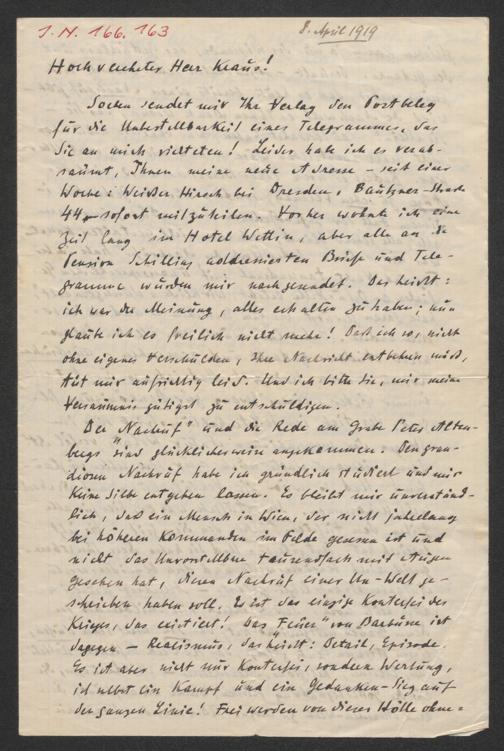 J. N. 166.163
8. April 1919
Hochverehrter Herr Kraus!
Soeben sendet mir Ihr Verlag den Postbeleg
für die Unbestellbarkeit eines Telegrammes, das
Sie an mich richteten! Leider habe ich es verab-
säumt, Ihnen meine neue Adresse – seit einer
Woche: Weißer Hirsch bei Dresden, Bautzner-Straße
44 – sofort mitzuteilen. Vorher wohnte ich eine
Zeit lang im Hotel Wettin, aber alle an die
Pension Schilling addressierten Briefe und Tele-
gramme wurden mir nachgesendet. Das heisst:
ich war der Meinung, alles erhalten zu haben; nun
glaube ich es freilich nicht mehr! Daß ich so, nicht
ohne eigenes Verschulden, Ihre Nachricht entbehren muß,
tut mir aufrichtig leid. Und ich bitte Sie, mir meine
Versäumnis gütigst zu entschuldigen.
Der „Nachruf" und die Rede am Grabe Peter Alten-
bergs sind glücklicherweise angekommen. Den gran-
diosen Nachruf habe ich gründlich studiert und mir
keine Silbe entgehen lassen. Es bleibt mir unverständ-
lich, daß ein Mensch in Wien, der nicht jahrelang
bei höheren Kommanden im Felde gesessen ist und
nicht das Unvorstellbare tausendfach mit Augen
gesehen hat, diesen Nachruf einer Un-Welt ge-
schrieben haben soll. Es ist das einzige Konterfei des
Krieges, das existiert! Das „Feuer" von Barbusse ist
dagegen – Realismus, das heisst: Detail, Episode.
Es ist aber nicht nur Konterfei, sondern Wertung,
ist selbst ein Kampf und ein Gedanken-Sieg auf
der ganzen Linie! Frei werden von dieser Hölle ohne=